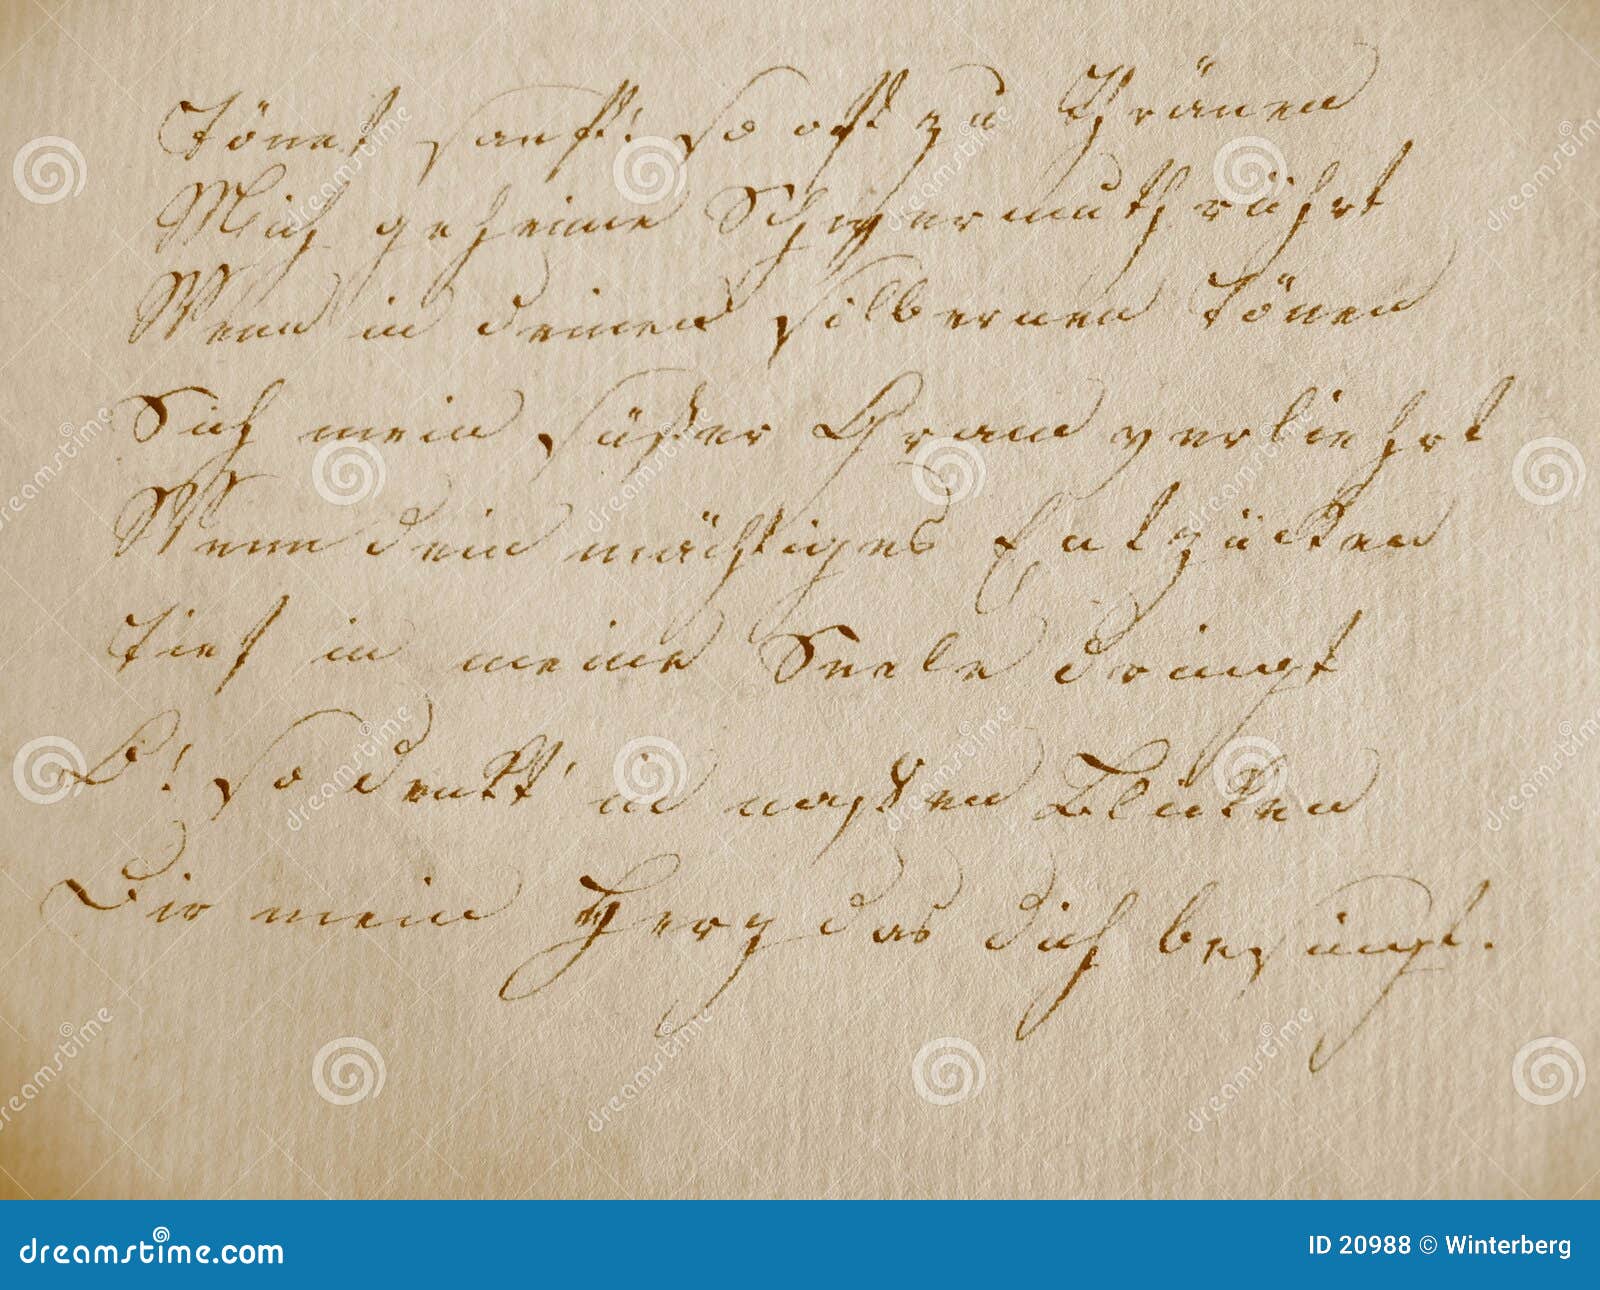 Tönet sanft! so oft zu Thränen
Mich geheime Schwermuth rührt
Wenn in deinen silbernen Tönen
Sich mein süßer Gram verliehrt
Wenn dein mächtiges Entzücken
Tief in meine Seele dringt
O! so denkt' in naßen Blicken
Dir mein Herz das dich besingt.
dreamstime.com
ID 20988 © Winterberg